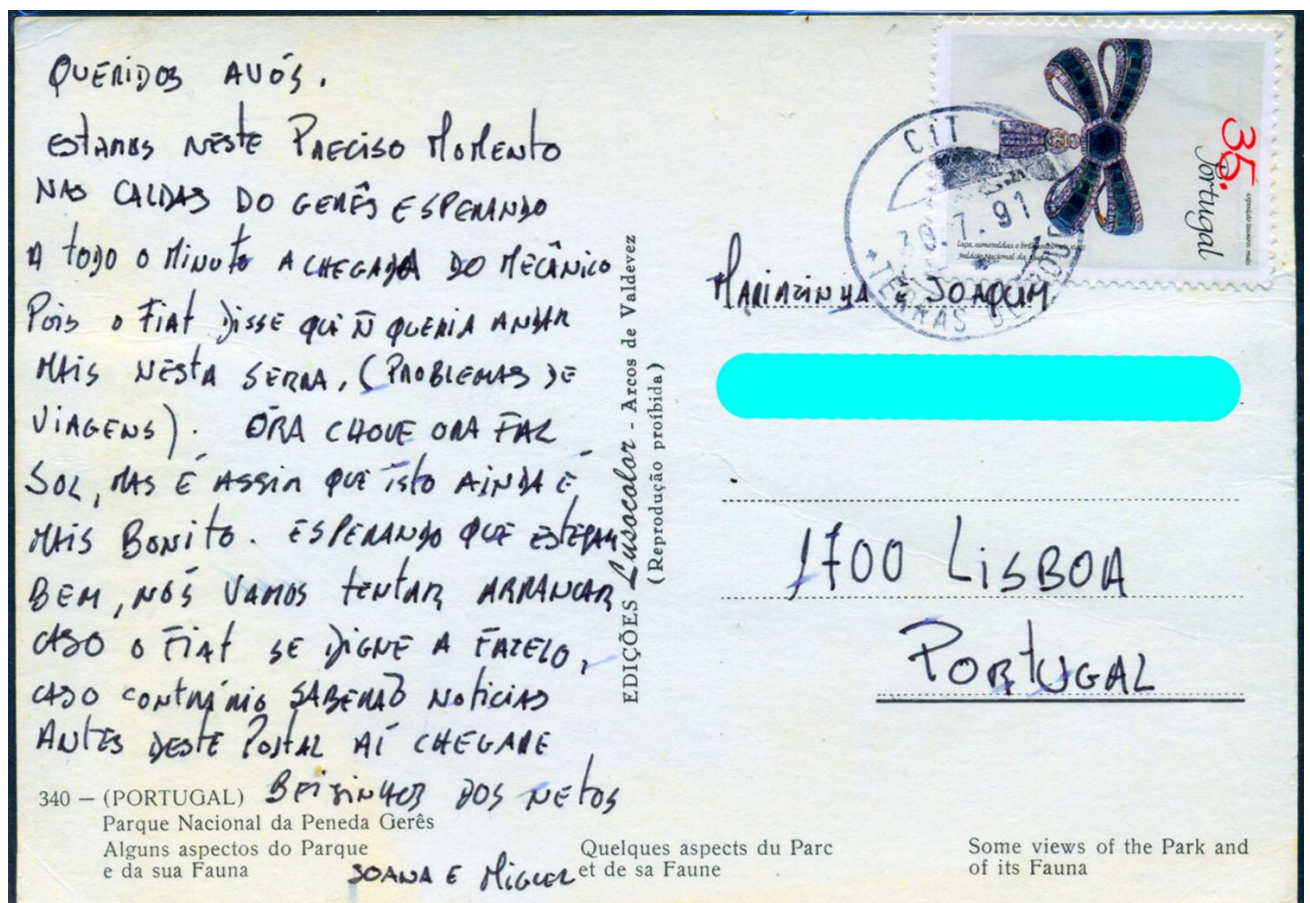 QUERIDOS AVÓS.
ESTAMOS NESTE PRECISO MOMENTO
NAS CALDAS DO GERÊS ESPERANDO
A TODO O MINUTO A CHEGADA DO MECÂNICO
POIS O FIAT DISSE QUE Ñ QUERIA ANDAR
MAIS NESTA SERRA, (PROBLEMAS DE
VIAGENS). ORA CHOVE ORA FAZ
SOL, MAS É ASSIM QUE ISTO AINDA É
MAIS BONITO. ESPERANDO QUE ESTEJAM
BEM, NÓS VAMOS TENTAR ARRANCAR
CASO O FIAT SE DIGNE A FAZELO,
CASO CONTRÁRIO SABERÃO NOTICIAS
ANTES DESTE POSTAL AÍ CHEGARE
BEIJINHOS DOS NETOS
JOANA E MIGUEL
340 – (PORTUGAL)
Parque Nacional da Peneda Gerês
Alguns aspectos do Parque
e da sua Fauna
Quelques aspects du Parc
et de sa Faune
Some views of the Park and
of its Fauna
EDIÇÕES Lusocolor - Arcos de Valdevez
(Reprodução proibida)
35.
Portugal
CIT
30.7.91
MARIAZINHA E JOAQUIM
1700 LISBOA
PORTUGAL